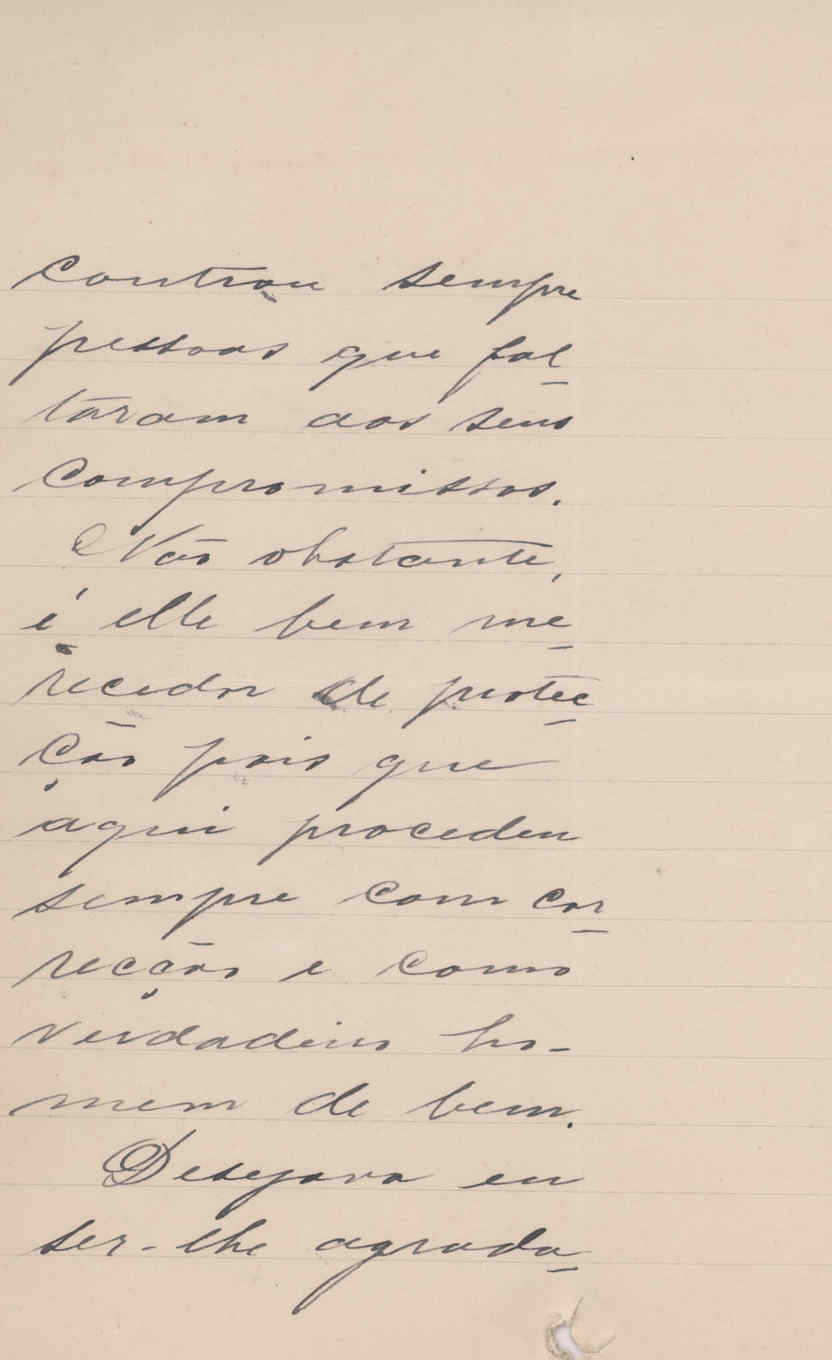 controu sempre
pessoas que fal-
taram aos seus
compromissos.
Não obstante,
é elle bem me-
recedor de protec-
ção pois que
aqui procedeu
sempre com cor-
recção e como
verdadeiro ho-
mem de bem.
Desejava eu
ser-lhe agrada-